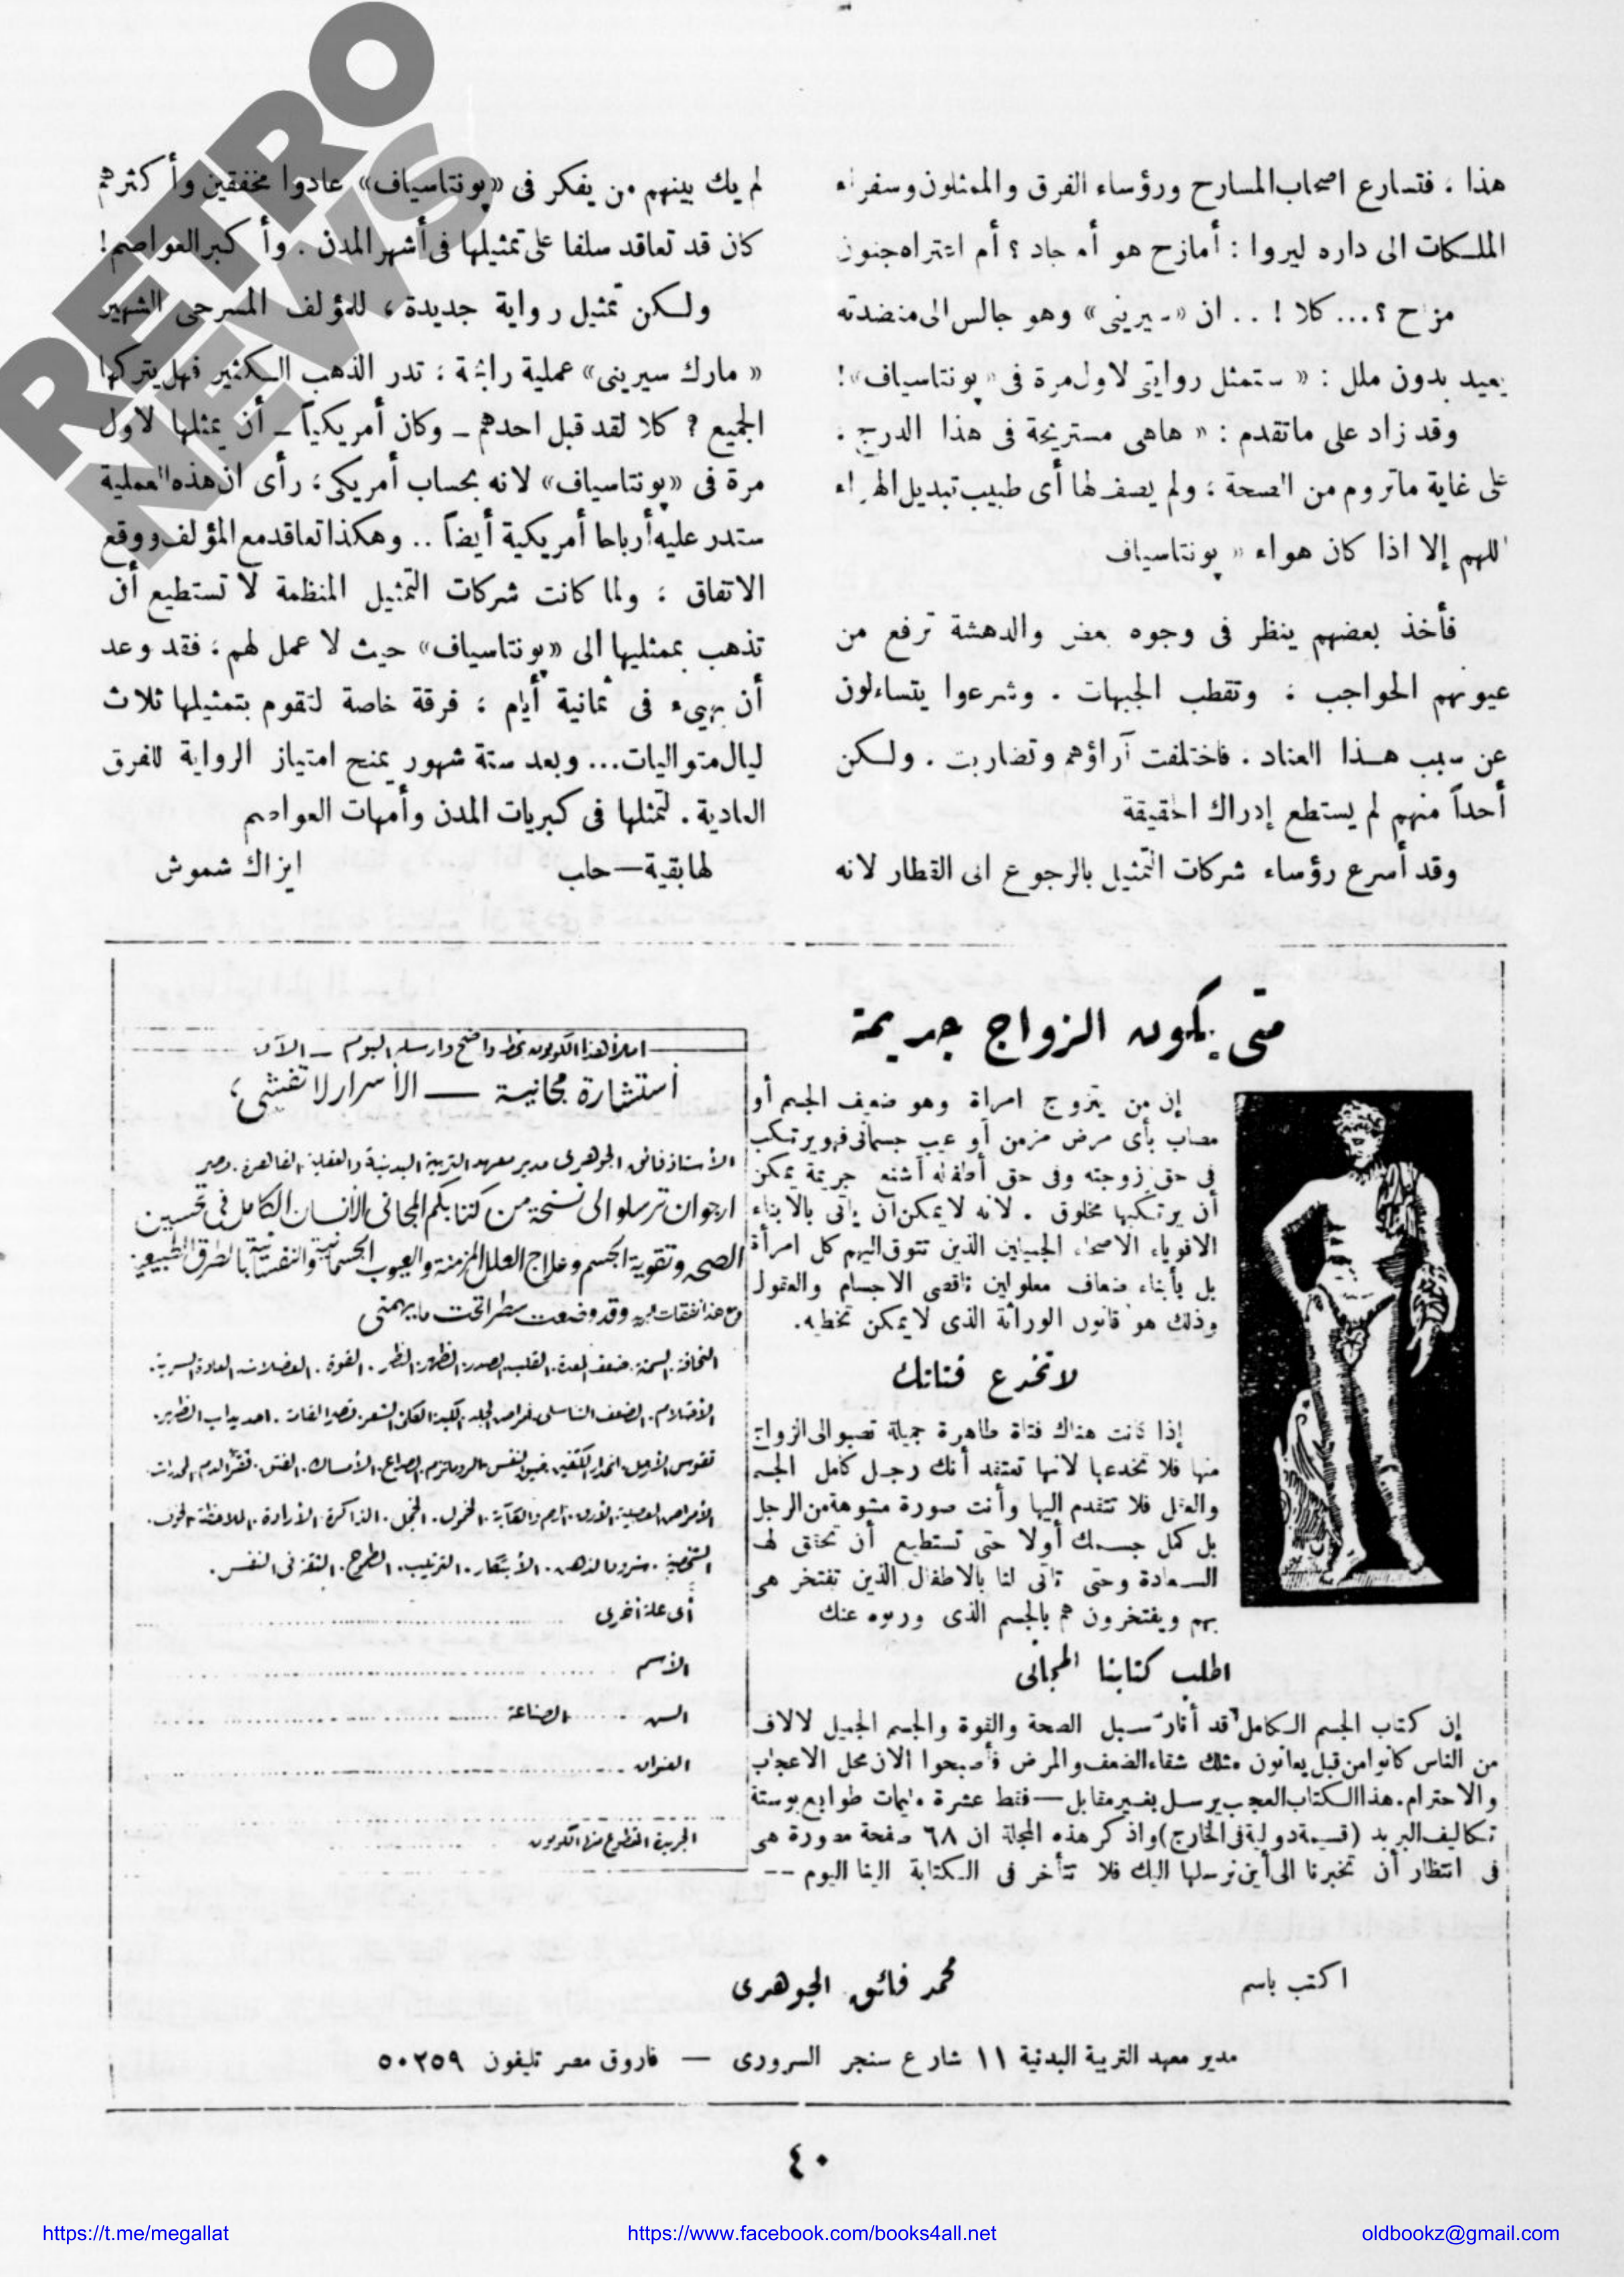 هذا ، فتسارع اصحاب المسارح ورؤساء الفرق والممثلون وسفراء
الملكات الى داره ليروا : أمازح هو أم جاد ؟ أم اعتراه جنون
مزاح ؟... كلا ! .. ان «سيريني» وهو جالس الى منضدته
يعيد بدون ملل : « ستمثل روايتي لاول مرة في «پونتاسياف»!
وقد زاد على ماتقدم : « هاهى مستريحة فى هذا الدرج ،
على غاية ماتروم من الصحة ، ولم يصف لها أى طبيب تبديل الهواء
اللهم إلا اذا كان هواء « پونتاسياف
فأخذ بعضهم ينظر فى وجوه بعض والدهشة ترفع من
عيونهم الحواجب ، وتقطب الجبهات . وشرعوا يتساءلون
عن سبب هذا العناد . فاختلفت آراؤهم وتضاربت . ولكن
أحداً منهم لم يستطع إدراك الحقيقة
وقد أسرع رؤساء شركات التمثيل بالرجوع الى القطار لانه
لم يك بينهم من يفكر فى «پونتاسياف» عادوا مخفقين وأكثرهم
كان قد تعاقد سلفا على تمثيلها فى أشهر المدن . وأكبر العواصم!
ولكن تمثيل رواية جديدة ، للمؤلف المسرحى الشهير
« مارك سيرينى» عملية رابحة ، تدر الذهب الكثير فهل يتركها
الجميع ؟ كلا لقد قبل احدهم ــ وكان أمريكياً ــ أن يمثلها لاول
مرة فى «پونتاسياف» لانه بحساب أمريكى ، رأى ان هذه العملية
ستدر عليه أرباحا أمريكية أيضاً .. وهكذا تعاقد مع المؤلف ووقع
الاتفاق ، ولما كانت شركات التمثيل المنظمة لا تستطيع أن
تذهب بممثليها الى «پونتاسياف» حيث لا عمل لهم ، فقد وعد
أن يهيىء فى ثمانية أيام ، فرقة خاصة لتقوم بتمثيلها ثلاث
ليال متواليات... وبعد ستة شهور يمنح امتياز الرواية للفرق
العادية . لتمثلها فى كبريات المدن وأمهات العواصم
لها بقية — حلب ايزاك شموش
متى يكون الزواج جريمة
إن من يتزوج امراة وهو ضعيف الجسم أو
مصاب بأى مرض مزمن أو عيب جسمانى فهو يرتكب
فى حق زوجته وفى حق أطفاله أشنع جريمة يمكن
أن يرتكبها مخلوق . لانه لايمكن أن يأتى بالابناء
الاقوياء الاصحاء الجميلين الذين تتوق اليهم كل امرأة
بل بأبناء ضعاف معلولين ناقصى الاجسام والعقول
وذلك هو قانون الوراثة الذى لايمكن تخطيه.
لاتخدع فتاتك
إذا كانت هناك فتاة طاهرة جميلة تصبو الى الزواج
منها فلا تخدعها لانها تعتقد أنك رجل كامل الجسم
والعقل فلا تتقدم إليها وأنت صورة مشوهة من الرجل
بل كمل جسمك أولا حتى تستطيع أن تحقق لها
السعادة وحتى تاتى لنا بالاطفال الذين تفتخر هى
بهم ويفتخرون هم بالجسم الذى ورثوه عنك
اطلب كتابنا المجانى
إن كتاب الجسم الكامل قد أنار سبيل الصحة والقوة والجسم الجميل لالاف
من الناس كانوا من قبل يعانون مثلك شقاء الضعف والمرض فأصبحوا الان محل الاعجاب
والاحترام. هذا الكتاب العجيب يرسل بغير مقابل — فقط عشرة مليمات طوابع بوستة
تكاليف البريد (قسيمة دولية فى الخارج) واذكر هذه المجلة ان ٦٨ صفحة مصورة هى
فى انتظار أن تخبرنا الى أين نرسلها اليك فلا تتأخر فى الكتابة الينا اليوم --
املأ هذا الكوبون بخط واضح وارسله اليوم ــ الآن
استشارة مجانية ــ الأسرار لا تفشى ،
الأستاذ فائق الجوهرى مدير معهد التربية البدنية والعقلية القاهرة . مصر
ارجو ان ترسلوا الى نسخة من كتابكم المجانى الانسان الكامل فى تحسين
الصحه وتقوية الجسم وعلاج العلل المزمنة والعيوب الجسمانية والنفسية بالطرق الطبيعية
وقد وضعت سطرا تحت ما يهمنى
النحافة . السمنة . ضعف المعدة . القلب . الصدر . الظهر . النظر . القوة . العضلات . العادة السرية .
الأحتلام . الضعف التناسلى . امراض الجلد . الكبد . الكلى . الشعر . قصر القامة . احديداب الظهر .
تقوس الأرجل . انحدار الكتفين . ضيق النفس . الروماتزم . الصداع . الأمساك . الفتق . فقر الدم . المخدرات .
الأمراض العصبية . الأرق . الهم والكآبة . الخمول . الخجل . الذاكرة . الأرادة . الملاحظة . الخوف .
الشخصية . شرود الذهن . الأبتكار . الترتيب . الطموح . الثقة فى النفس .
أى علة أخرى
الأسم
السن الصناعة
العنوان
الجريدة المقطوع منها الكوبون
اكتب باسم محمد فائق الجوهرى
مدير معهد التربية البدنية ١١ شارع سنجر السرورى — فاروق مصر تليفون ٥٠٢٥٩
٤٠
RETRO
NEWS
https://t.me/megallat https://www.facebook.com/books4all.net oldbookz@gmail.com